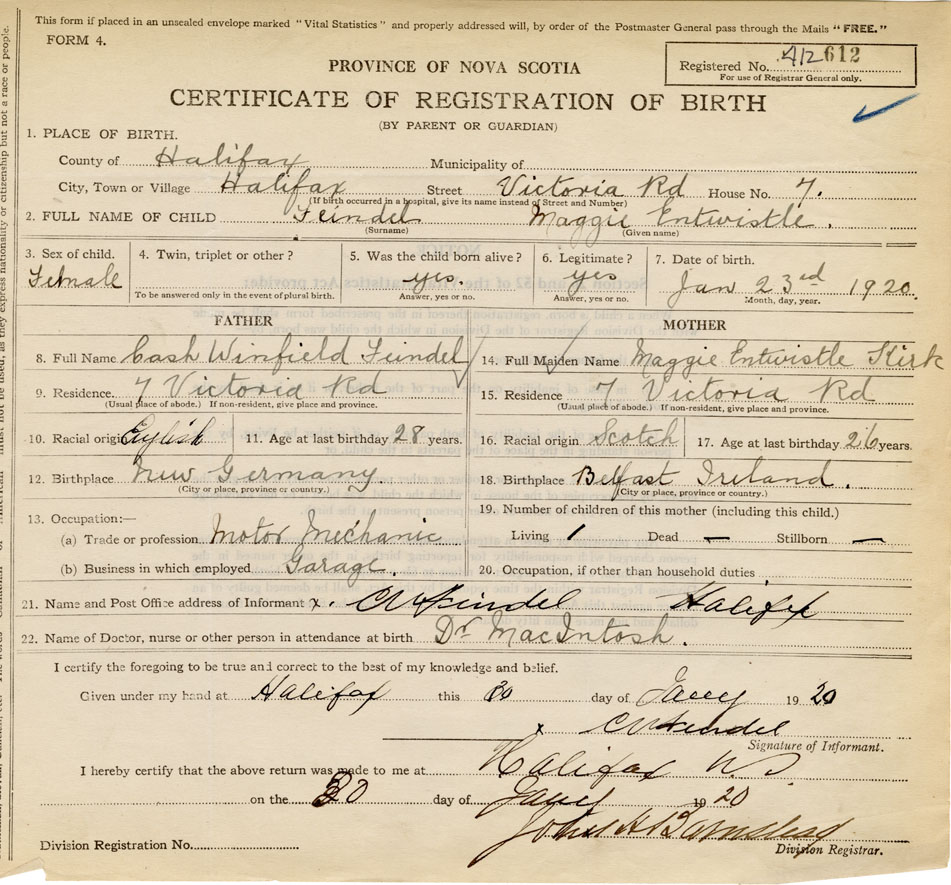 This form if placed in an unsealed envelope marked "Vital Statistics" and properly addressed will, by order of the Postmaster General pass through the Mails "FREE."
FORM 4.
Registered No. 412612
For use of Registrar General only.
PROVINCE OF NOVA SCOTIA
CERTIFICATE OF REGISTRATION OF BIRTH
(BY PARENT OR GUARDIAN)
1. PLACE OF BIRTH.
County of Halifax Municipality of
City, Town or Village Halifax Street Victoria Rd House No. 7.
(If birth occurred in a hospital, give its name instead of Street and Number)
2. FULL NAME OF CHILD Feindel Maggie Entwistle.
(Surname) (Given name)
3. Sex of child. 4. Twin, triplet or other? 5. Was the child born alive? 6. Legitimate? 7. Date of birth.
Female yes. yes Jan 23rd 1920.
To be answered only in the event of plural birth. Answer, yes or no. Answer, yes or no. Month, day, year.
FATHER MOTHER
8. Full Name Cash Winfield Feindel 14. Full Maiden Name Maggie Entwistle Kirk
9. Residence 7 Victoria Rd 15. Residence 7 Victoria Rd
(Usual place of abode.) If non-resident, give place and province. (Usual place of abode.) If non-resident, give place and province.
10. Racial origin 11. Age at last birthday 28 years. 16. Racial origin Scotch 17. Age at last birthday 26 years.
12. Birthplace New Germany 18. Birthplace Belfast Ireland.
(City or place, province or country.) (City or place, province or country.)
13. Occupation:— 19. Number of children of this mother (including this child.)
(a) Trade or profession Motor Mechanic Living 1 Dead — Stillborn —
(b) Business in which employed Garage. 20. Occupation, if other than household duties
21. Name and Post Office address of Informant x. CW Feindel Halifax
22. Name of Doctor, nurse or other person in attendance at birth Dr. MacIntosh.
I certify the foregoing to be true and correct to the best of my knowledge and belief.
Given under my hand at Halifax this 30 day of Jany 1920
x CW Feindel
Signature of Informant.
I hereby certify that the above return was made to me at Halifax NS
on the 30 day of Jany 1920
John H Barnstead
Division Registration No. Division Registrar.